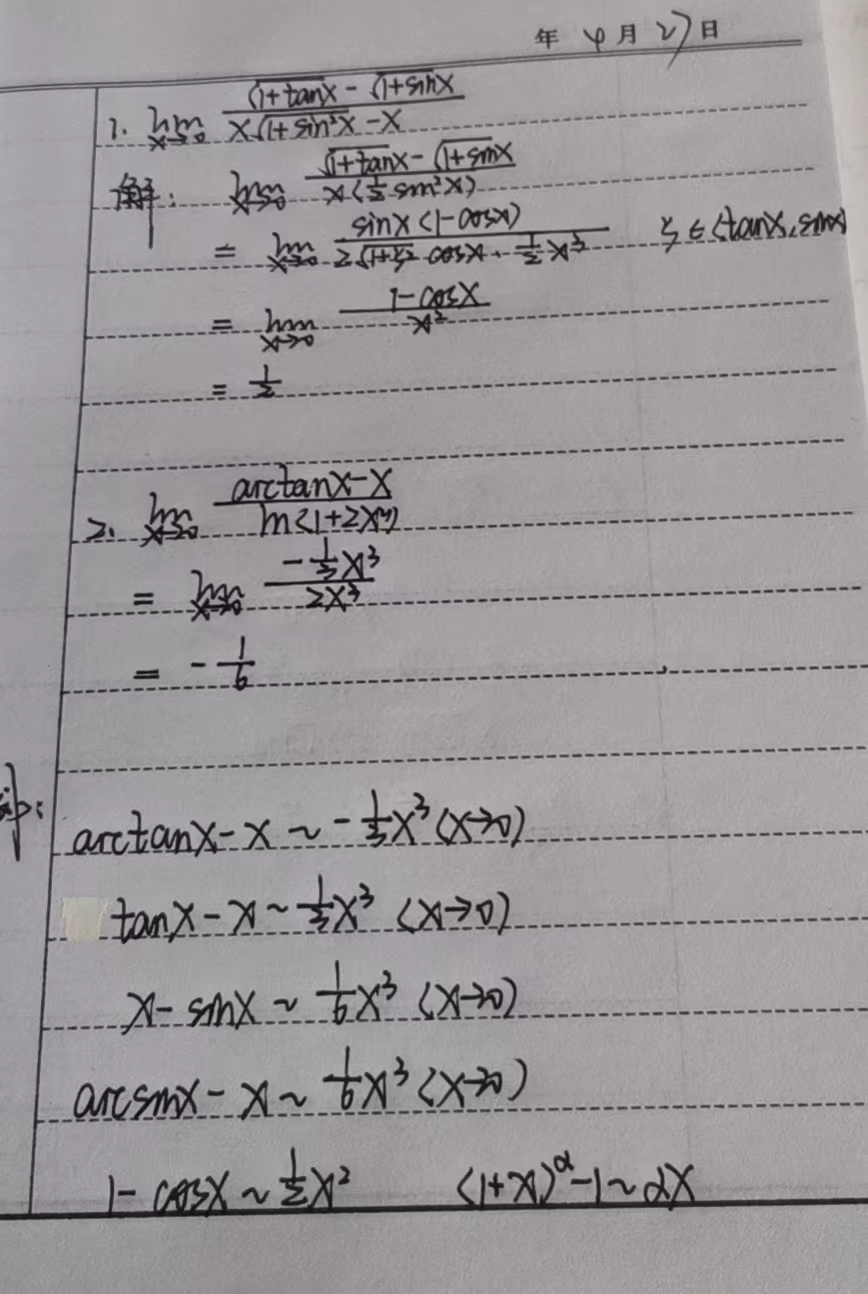 年 4月 27日
1. lim x→0 (√(1+tanx) - √(1+sinx)) / (x√(1+sin²x) - x)
解: lim x→0 (√(1+tanx) - √(1+sinx)) / (x(½sin²x))
= lim x→0 sinx(1-cosx) / (2√(1+ξ) cosx · ½x³) ξ∈(tanx, sinx)
= lim x→0 (1-cosx) / x²
= ½
2. lim x→0 (arctanx - x) / ln(1+2x³)
= lim x→0 (-⅓x³) / (2x³)
= -1/6
arctanx - x ~ -⅓x³ (x→0)
tanx - x ~ ⅓x³ (x→0)
x - sinx ~ 1/6 x³ (x→0)
arcsinx - x ~ 1/6 x³ (x→0)
1 - cosx ~ ½x² (1+x)^α - 1 ~ αx